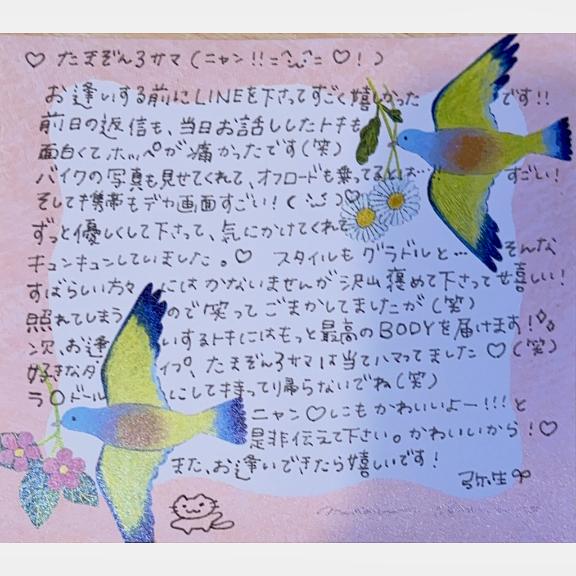 ♡ たまぞん3サマ(ニャン!!=^ x ^= ♡!)
お逢いする前にLINEを下さってすごく嬉しかった です!!
前日の返信も、当日お話ししたトキも
面白くてホッペが痛かったです(笑)
バイクの写真も見せてくれて、オフロードも乗ってるとは…!! すごい!
そして携帯もデカ画面すごい!( ) ♡
ずっと優しくして下さって、気にかけてくれて
キュンキュンしていました。♡ スタイルもグラドルと… そんな
すばらしい方々 にはかないませんが沢山褒めて下さって嬉しい!
照れてしまう ので笑ってごまかしてましたが(笑)
次、お逢 いするトキにはもっと最高のBODYを届けます!
好きなタ イプ、たまぞん3サマは当てハマってました♡(笑)
ラ〇ドール にして持って帰らないでね(笑)
ニャン♡にもかわいいよー!!!と
是非伝えて下さい。かわいいから!♡
また、お逢いできたら嬉しいです!
弥生